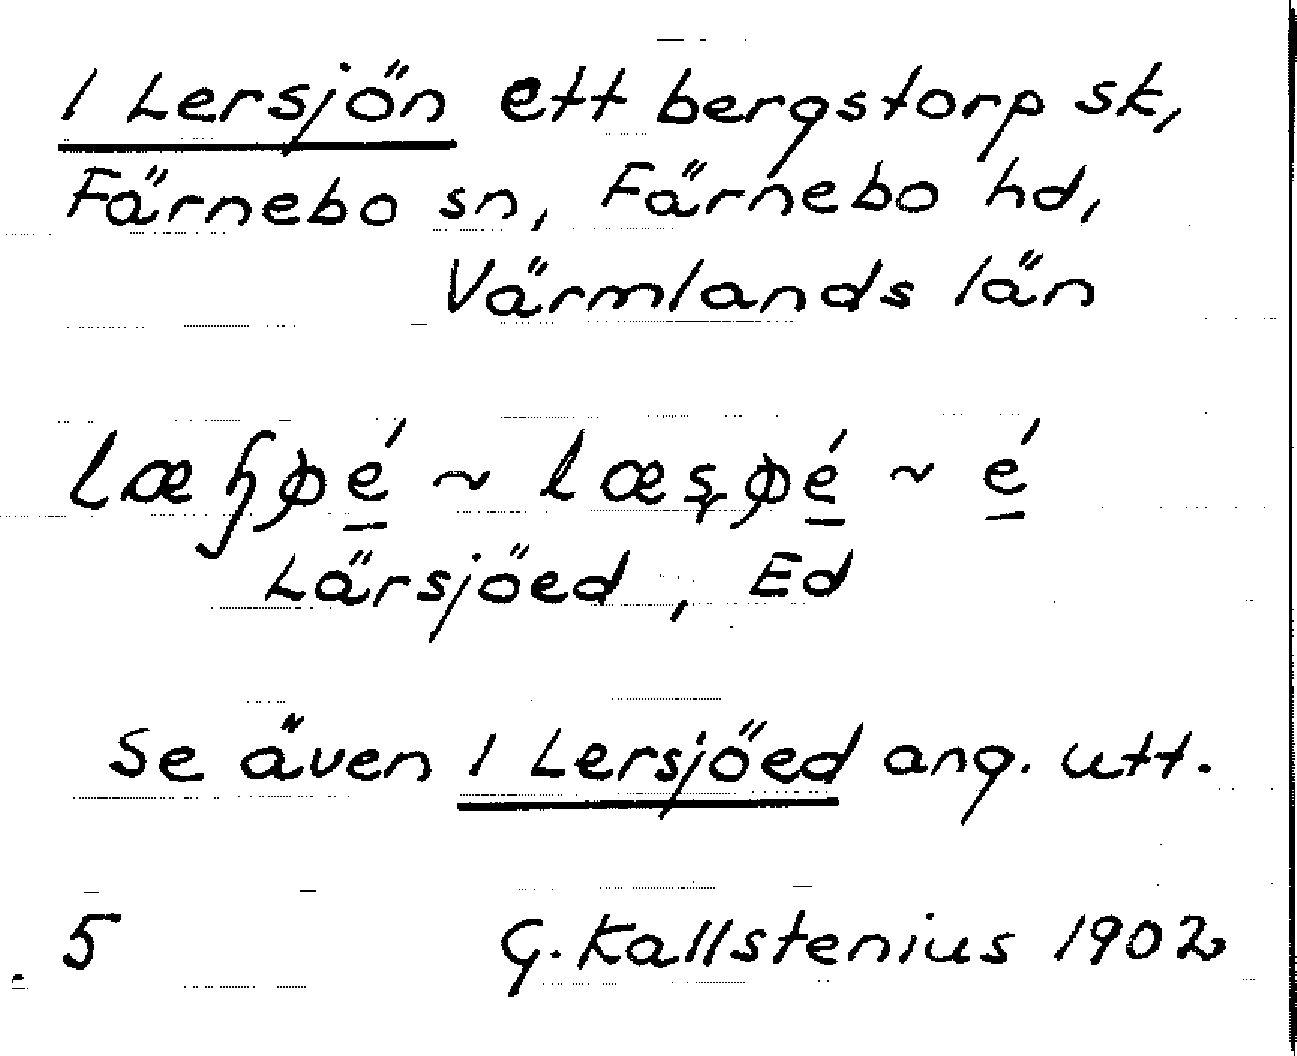 1 Lersjön ett bergstorp sk,
Färnebo sn, Färnebo hd,
Värmlands län
~ ~ é
Lärsjöed, Ed
Se även 1 Lersjöed ang. utt.
5 G. Kallstenius 1902